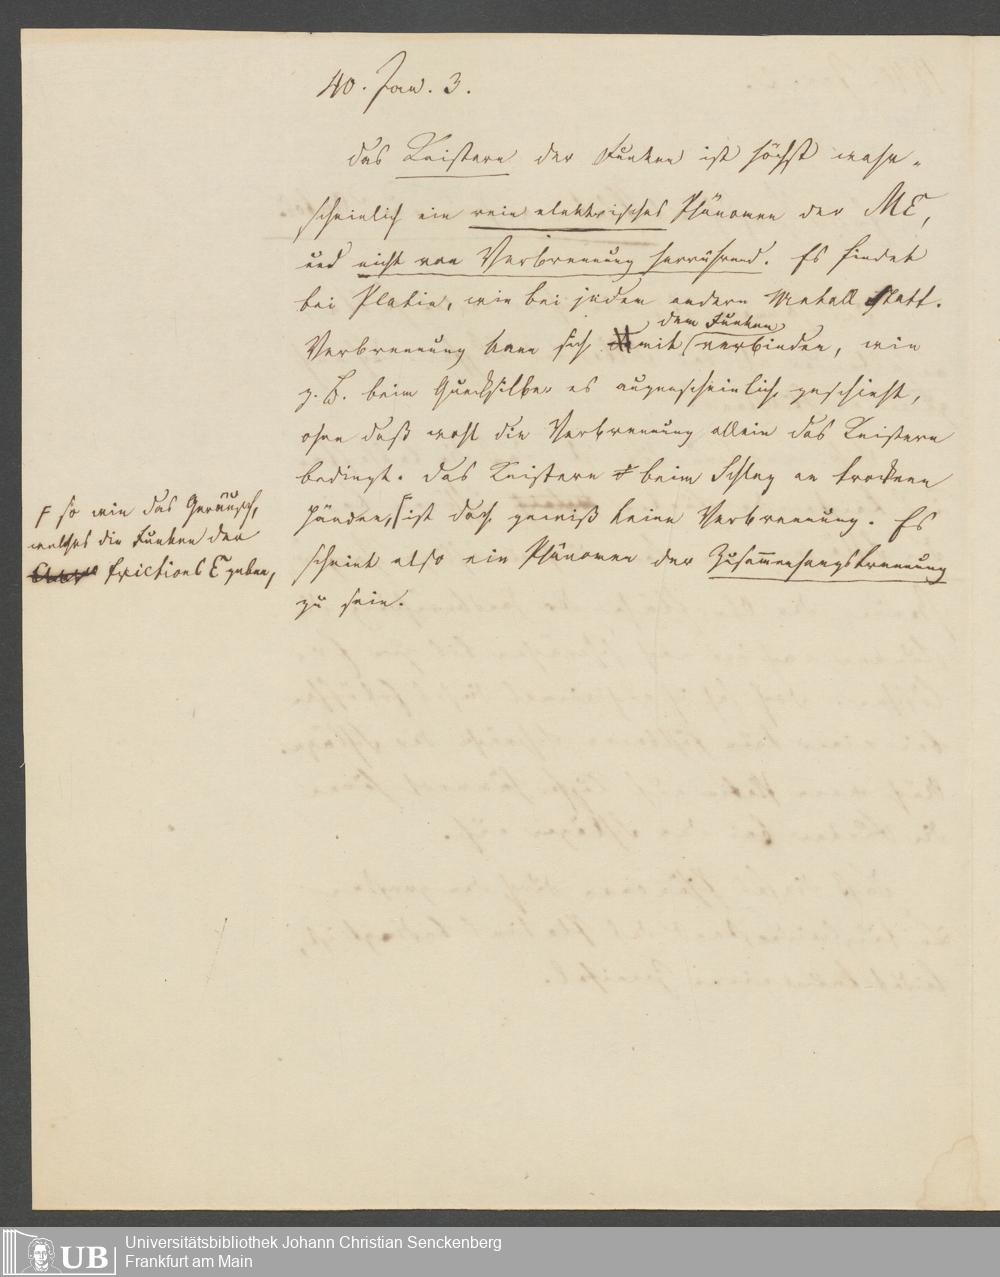 40. Jan. 3.
Das Knistern der Funken ist höchst wahr-
scheinlich ein rein elektrisches Phänomen der ME,
und nicht von Verbrennung herrührend. Es findet
bei Platin, wie bei jeden andern Metall statt.
dem Funken
Verbrennung kann sich mit verbinden, wie
z. B. beim Quecksilber es augenscheinlich geschieht,
ohne daß wohl die Verbrennung allein das Knistern
bedingt. Das Knistern beim Schlag an trocknen
Händen, ist doch gewiß keine Verbrennung. Es
scheint also ein Phänomen der Zusammenhangstrennung
zu sein.
F so wie das Geräusch,
welches die Funken der
frictions E geben,
UB
Universitätsbibliothek Johann Christian Senckenberg
Frankfurt am Main